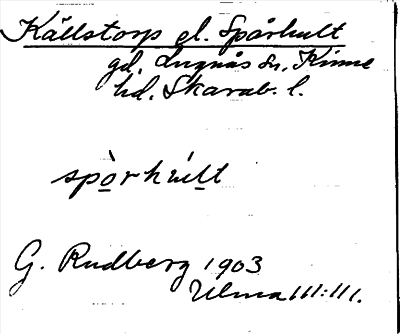 Källstorp el. Spårhult
gd, Lugnås sn, Kinne
hd, Skarab. l.
spòrhúlt
G. Rudberg 1903
Ulma 111:111.